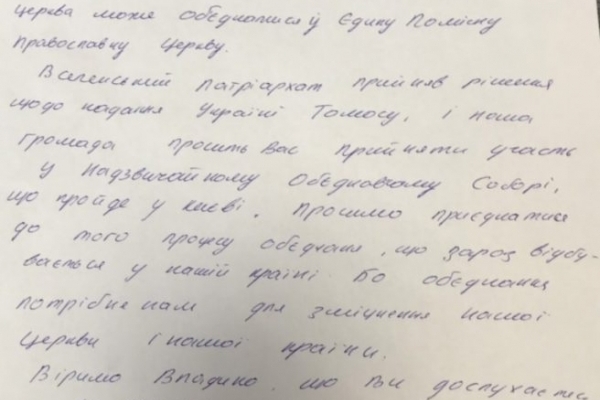 церква може обєднатися у Єдину Помісну
православну церкву.
Вселенський патріархат прийняв рішення
щодо надання Україні Томосу, і наша
громада просить Вас прийняти участь
у Надзвичайному Обєдновчому Соборі,
що пройде у Києві. Просимо приєднатися
до того процесу обєднання, що зараз відбу-
вається у нашій країні. Бо обєднання
потрібне нам для зміцнення нашої
церкви і нашої країни.
Віримо Владико, що Ви дослухаєтесь